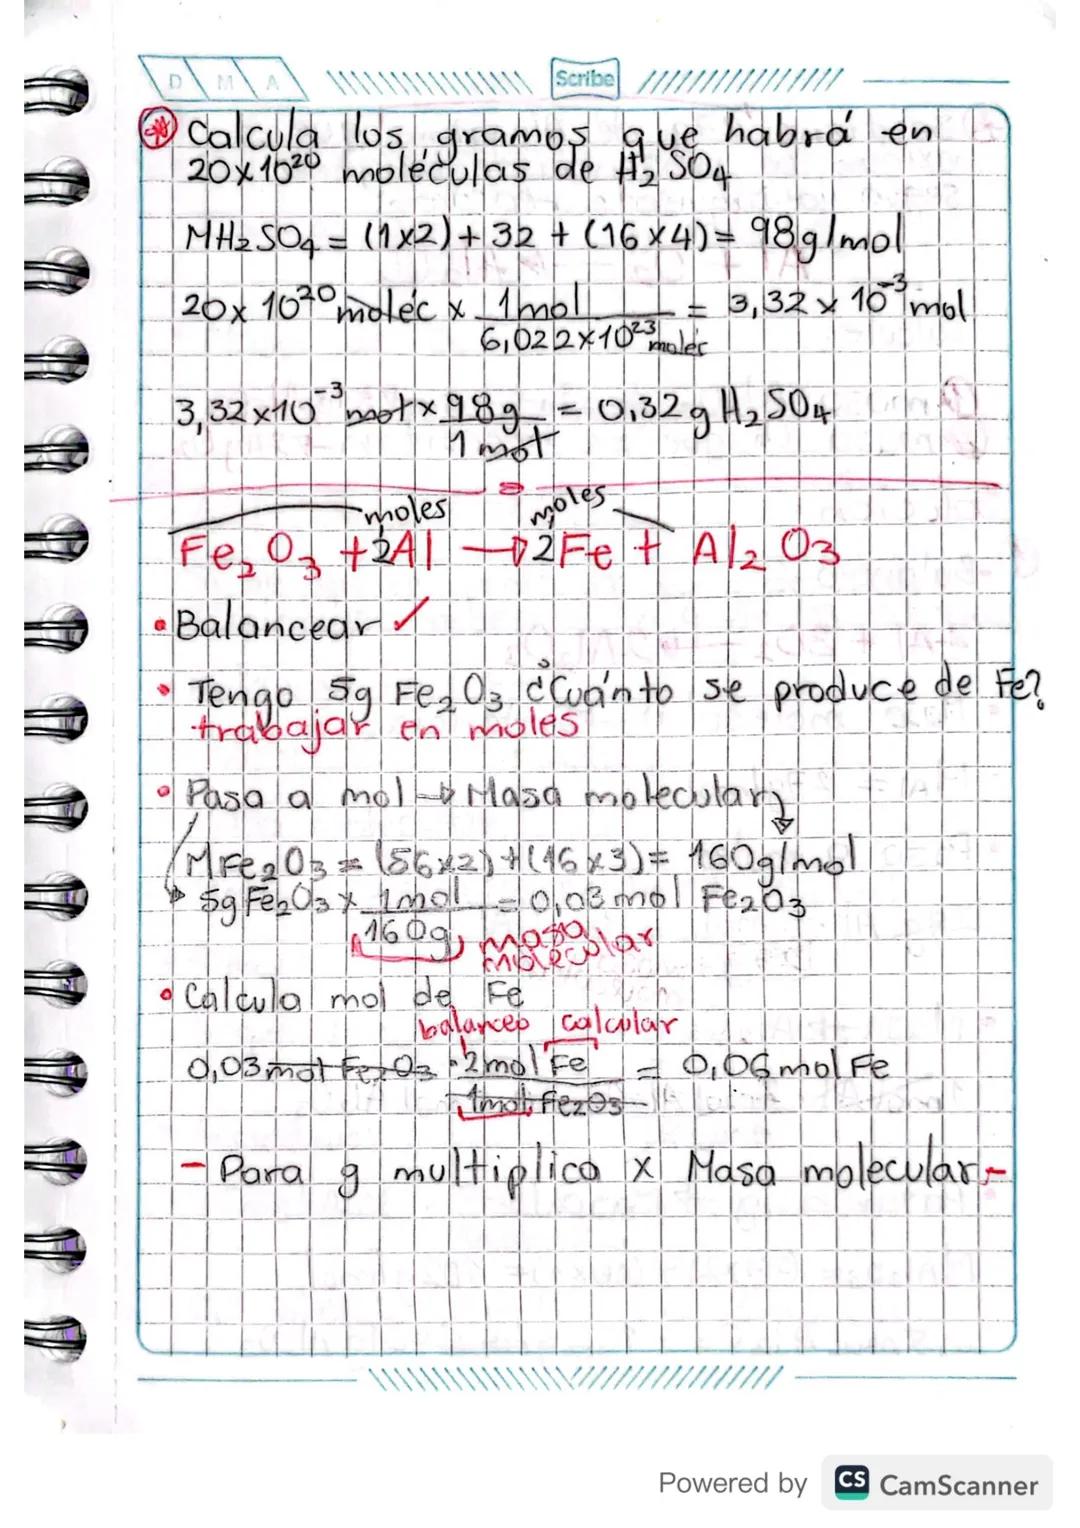 D M A Scribe
Calcula los gramos que habrá en
20x10²⁰ moléculas de H₂SO₄
MH₂SO₄ = (1x2) + 32 + (16x4) = 98g/mol
20x10²⁰ moléc x 1mol / 6,022x10²³ moléc = 3,32 x 10⁻³ mol
3,32x10⁻³ mol x 98g / 1 mol = 0,32g H₂SO₄
moles moles
Fe₂O₃ + 2Al → 2Fe + Al₂O₃
• Balancear ✓
• Tengo 5g Fe₂O₃ ¿Cuánto se produce de Fe?
trabajar en moles
• Pasa a mol → Masa molecular
MFe₂O₃ = (56x2) + (16x3) = 160g/mol
5g Fe₂O₃ x 1mol / 160g = 0,03 mol Fe₂O₃
masa molecular
• Calcula mol de Fe
balanceo calcular
0,03 mol Fe₂O₃ · 2mol Fe / 1mol Fe₂O₃ = 0,06 mol Fe
- Para g multiplico x Masa molecular -
Powered by CS CamScanner